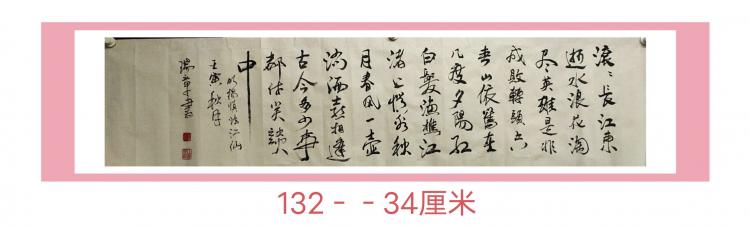 滚〻長江東
逝水浪花淘
尽英雄是非
成敗轉頭空
青山依舊在
几度夕陽红
白髮渔樵江
渚上惯看秋
月春风一壶
浊酒喜相逢
古今多少事
都付笑談
中
明杨慎临江仙
壬寅秋月
132--34厘米